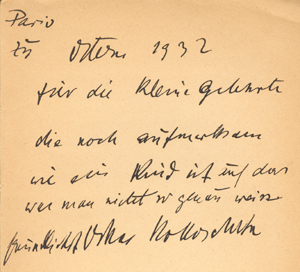 Paris
zu Ostern 1932
für die kleine Gelehrte
die noch aufmerksam
wie ein Kind ist auf das
was man nicht so genau weiss
freundlichst Oskar Kokoschka